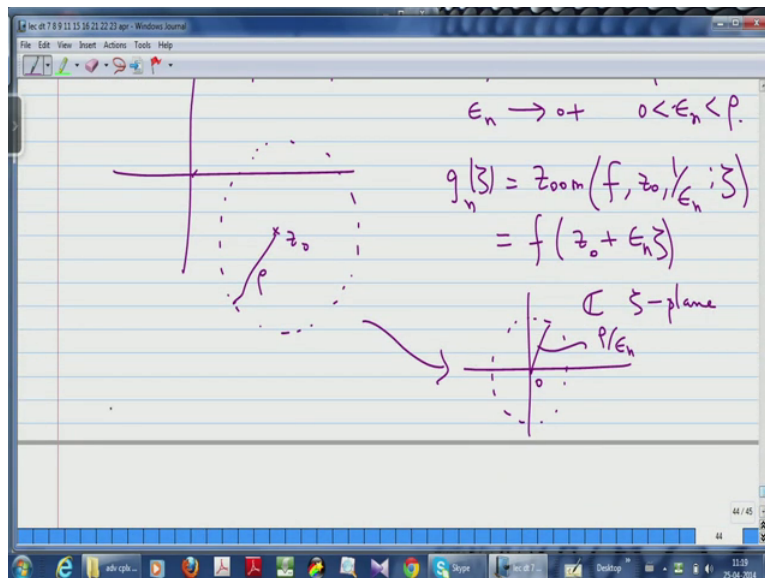 lec dt 7 8 9 11 15 16 21 22 23 apr - Windows Journal
File Edit View Insert Actions Tools Help
ϵₙ → 0+ 0 < ϵₙ < ρ.
gₙ(ζ) = zoom(f, z₀, 1/ϵₙ; ζ)
= f(z₀ + ϵₙζ)
z₀
ρ
ℂ ζ-plane
ρ/ϵₙ
0
44 / 45
44
adv cplx ...
Skype
lec dt 7 ...
Desktop
11:19
25-04-2014